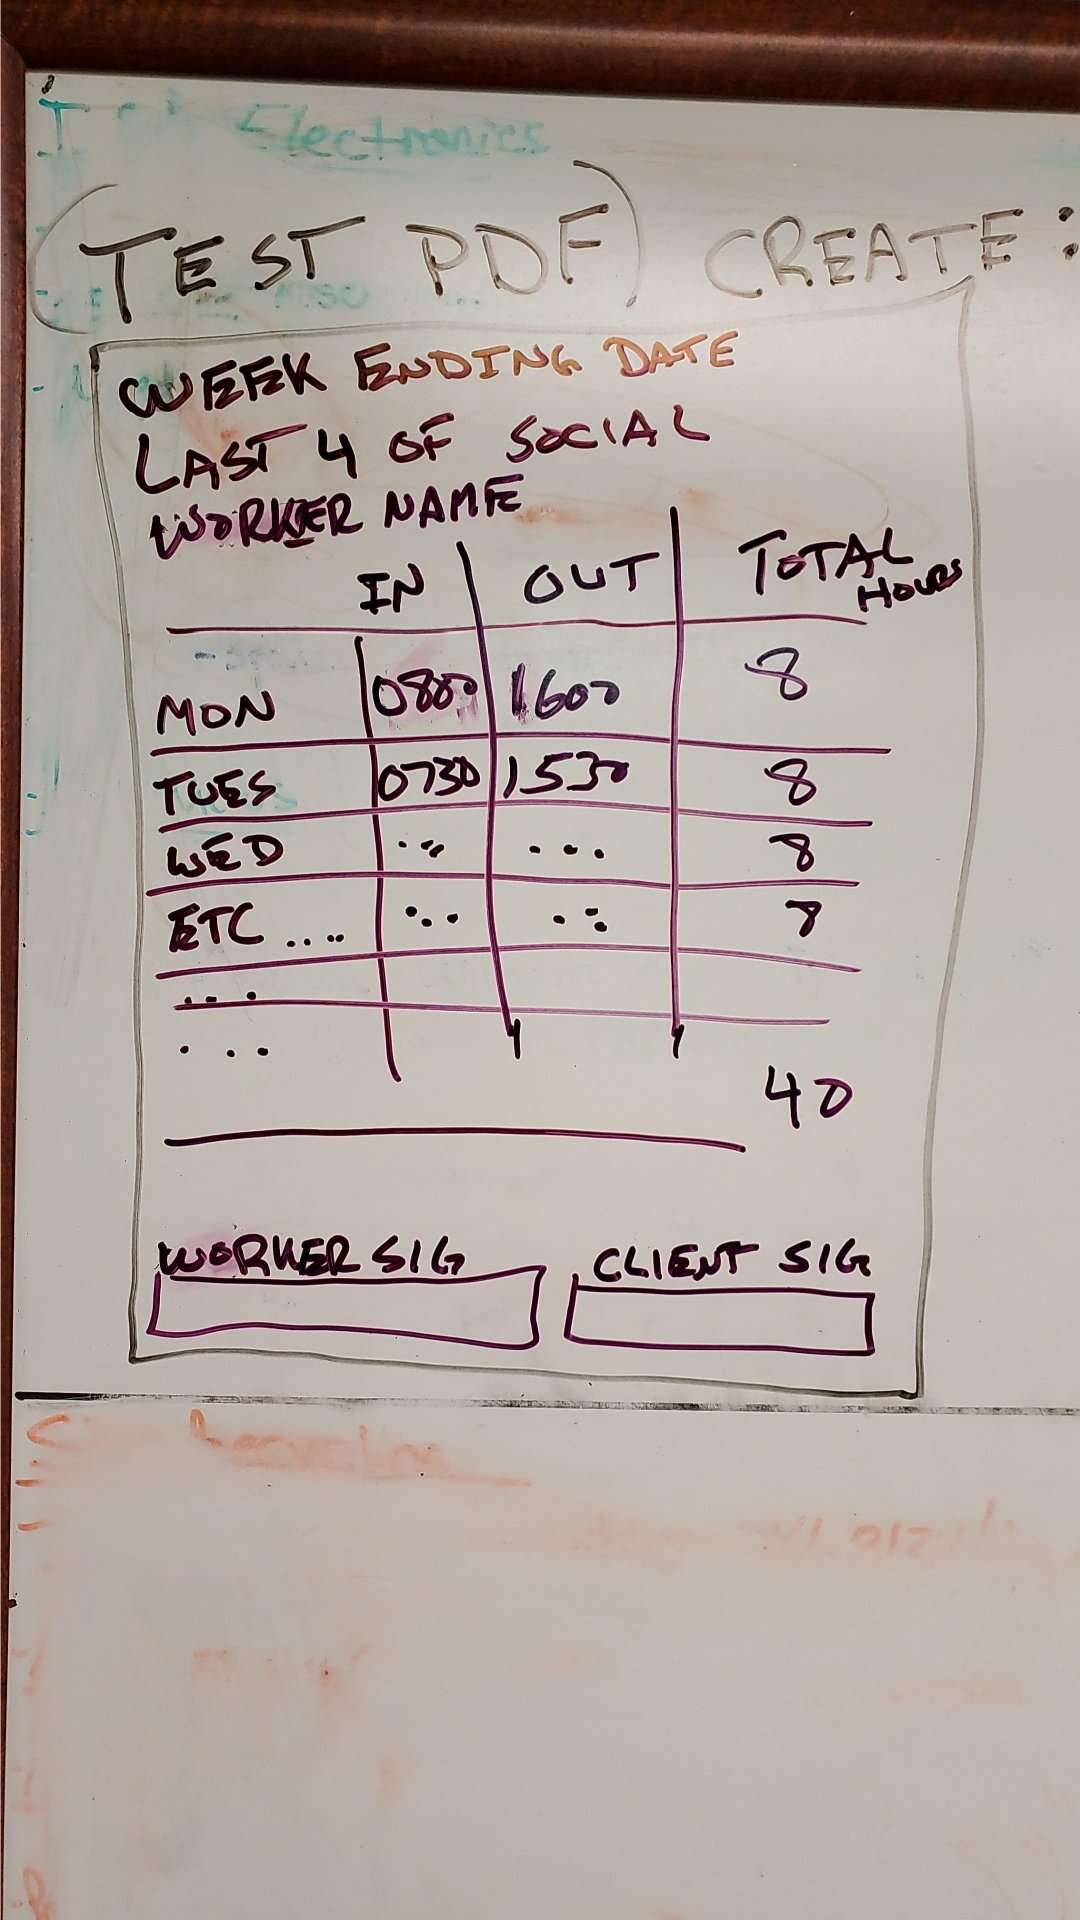 Electronics
(TEST PDF) CREATE:
WEEK ENDING DATE
LAST 4 OF SOCIAL
WORKER NAME
IN OUT TOTAL HOURS
MON 0800 1600 8
TUES 0730 1530 8
WED ... ... 8
ETC .... ... ... 8
...
...
40
WORKER SIG CLIENT SIG